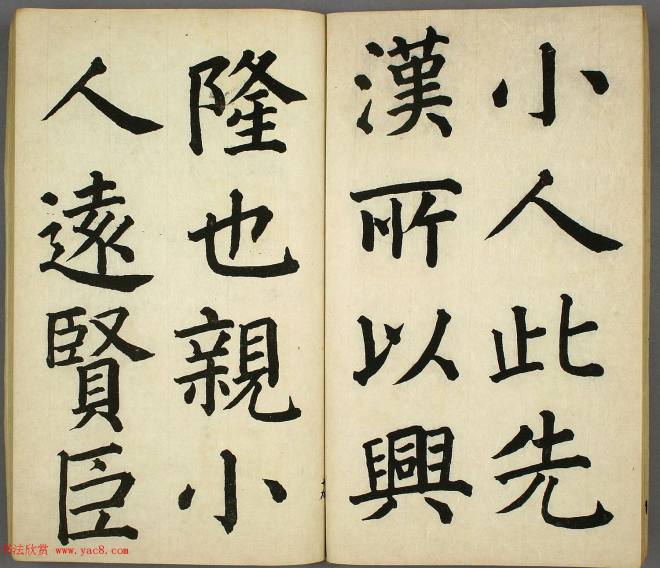 小人此先
漢所以興
隆也親小
人遠賢臣
法欣赏 www.yac8.com